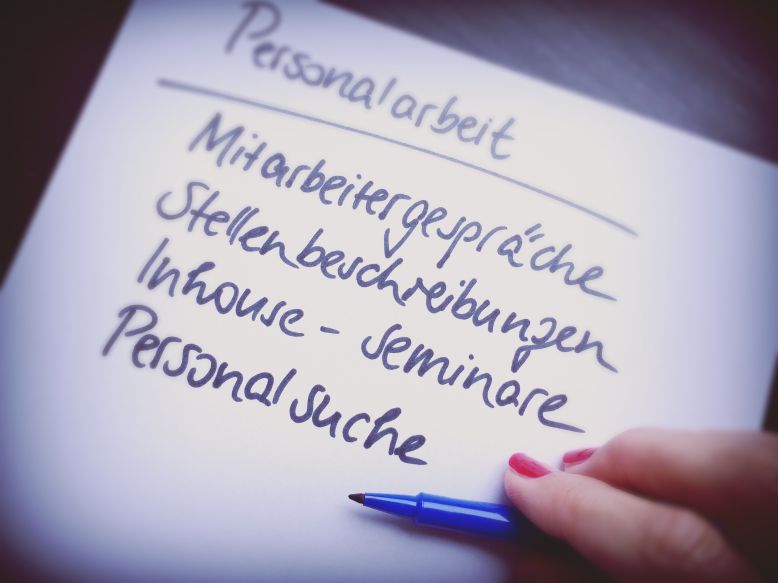 Personalarbeit
Mitarbeitergespräche
Stellenbeschreibungen
Inhouse - seminare
Personalsuche